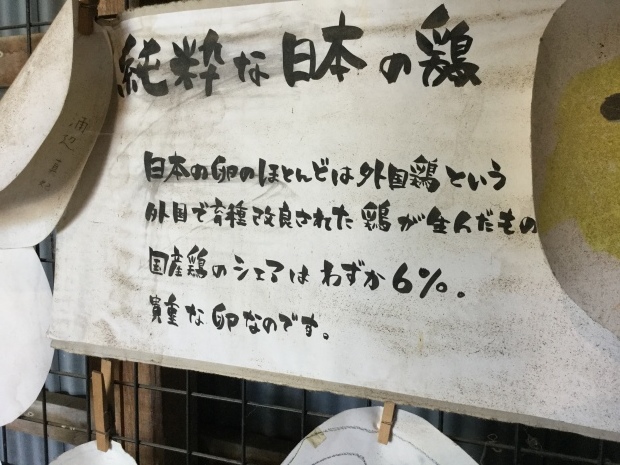 純粋な日本の鶏
日本の卵のほとんどは外国鶏という
外国で育種改良された鶏が生んだもの
国産鶏のシェアはわずか6%.
貴重な卵なのです。